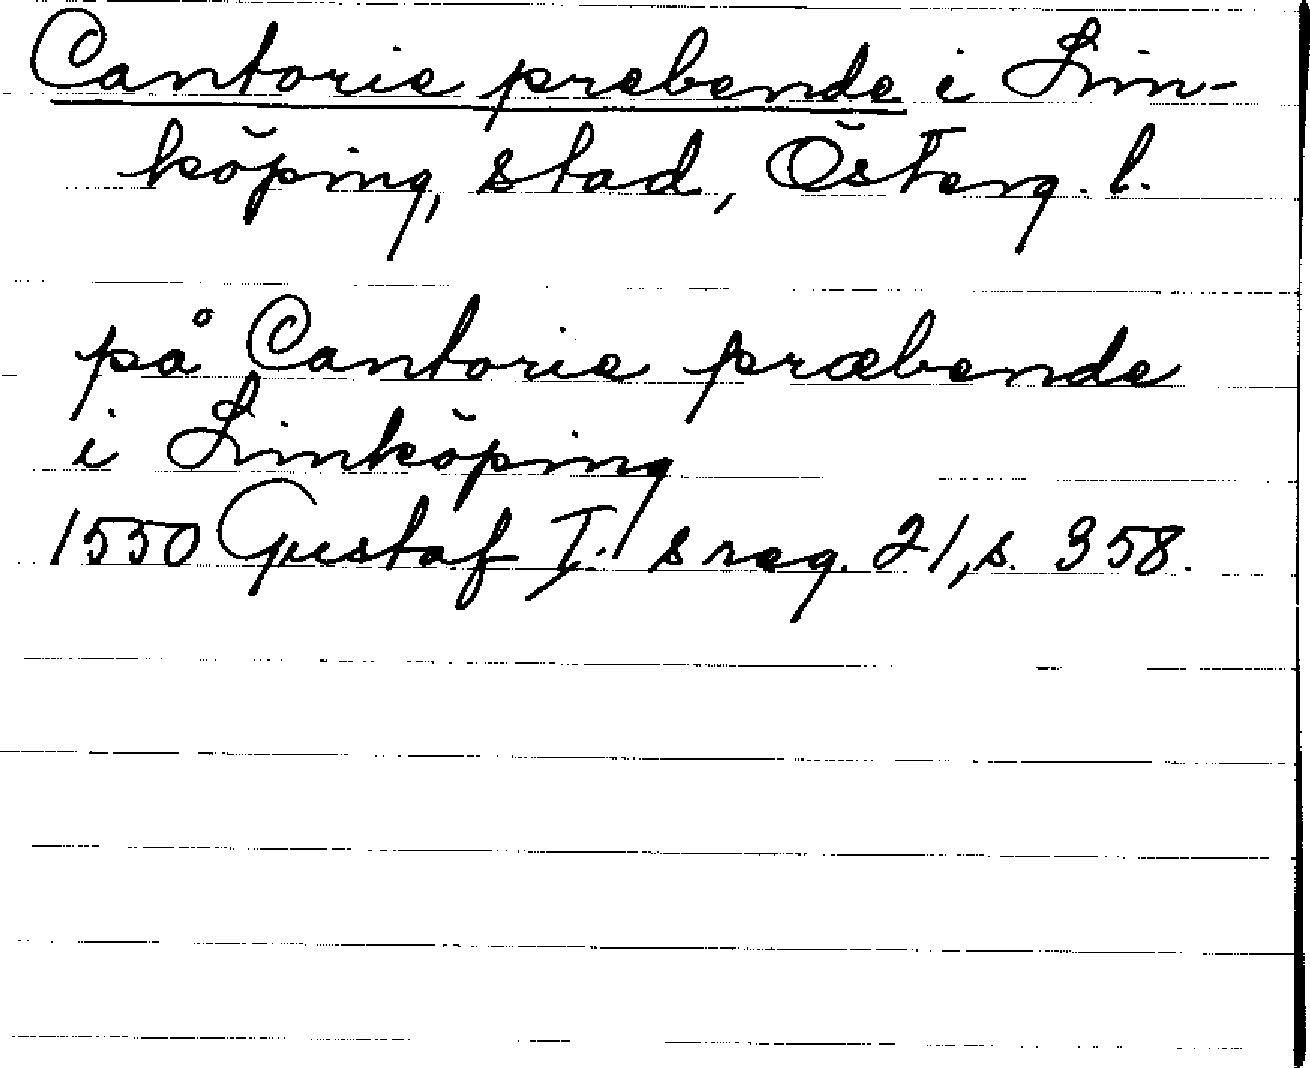 Cantorie prebende i Lin-
köping, stad, Österg. l.
på Cantorie præbende
i Linköping
1550 Gustaf I.s reg. 21, s. 358.